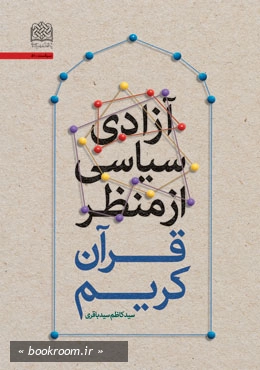 آزادی
سیاسی
از منظر
قرآن
کریم
سیدکاظم سیدباقری
« bookroom.ir »